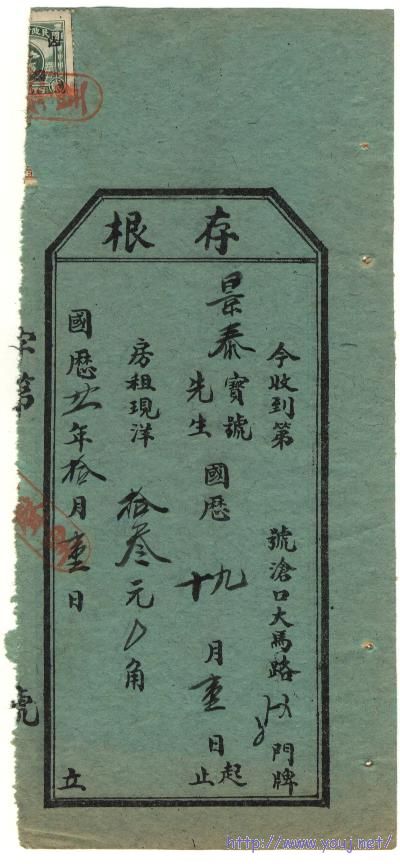 存根
今收到第 號滄口大馬路 門牌
景泰寶號
先生
國歷 九 月壹日起
十 止
房租現洋 拾叁元 角
國歷廿年拾月壹日 立
字第 號
http://www.youj.net/